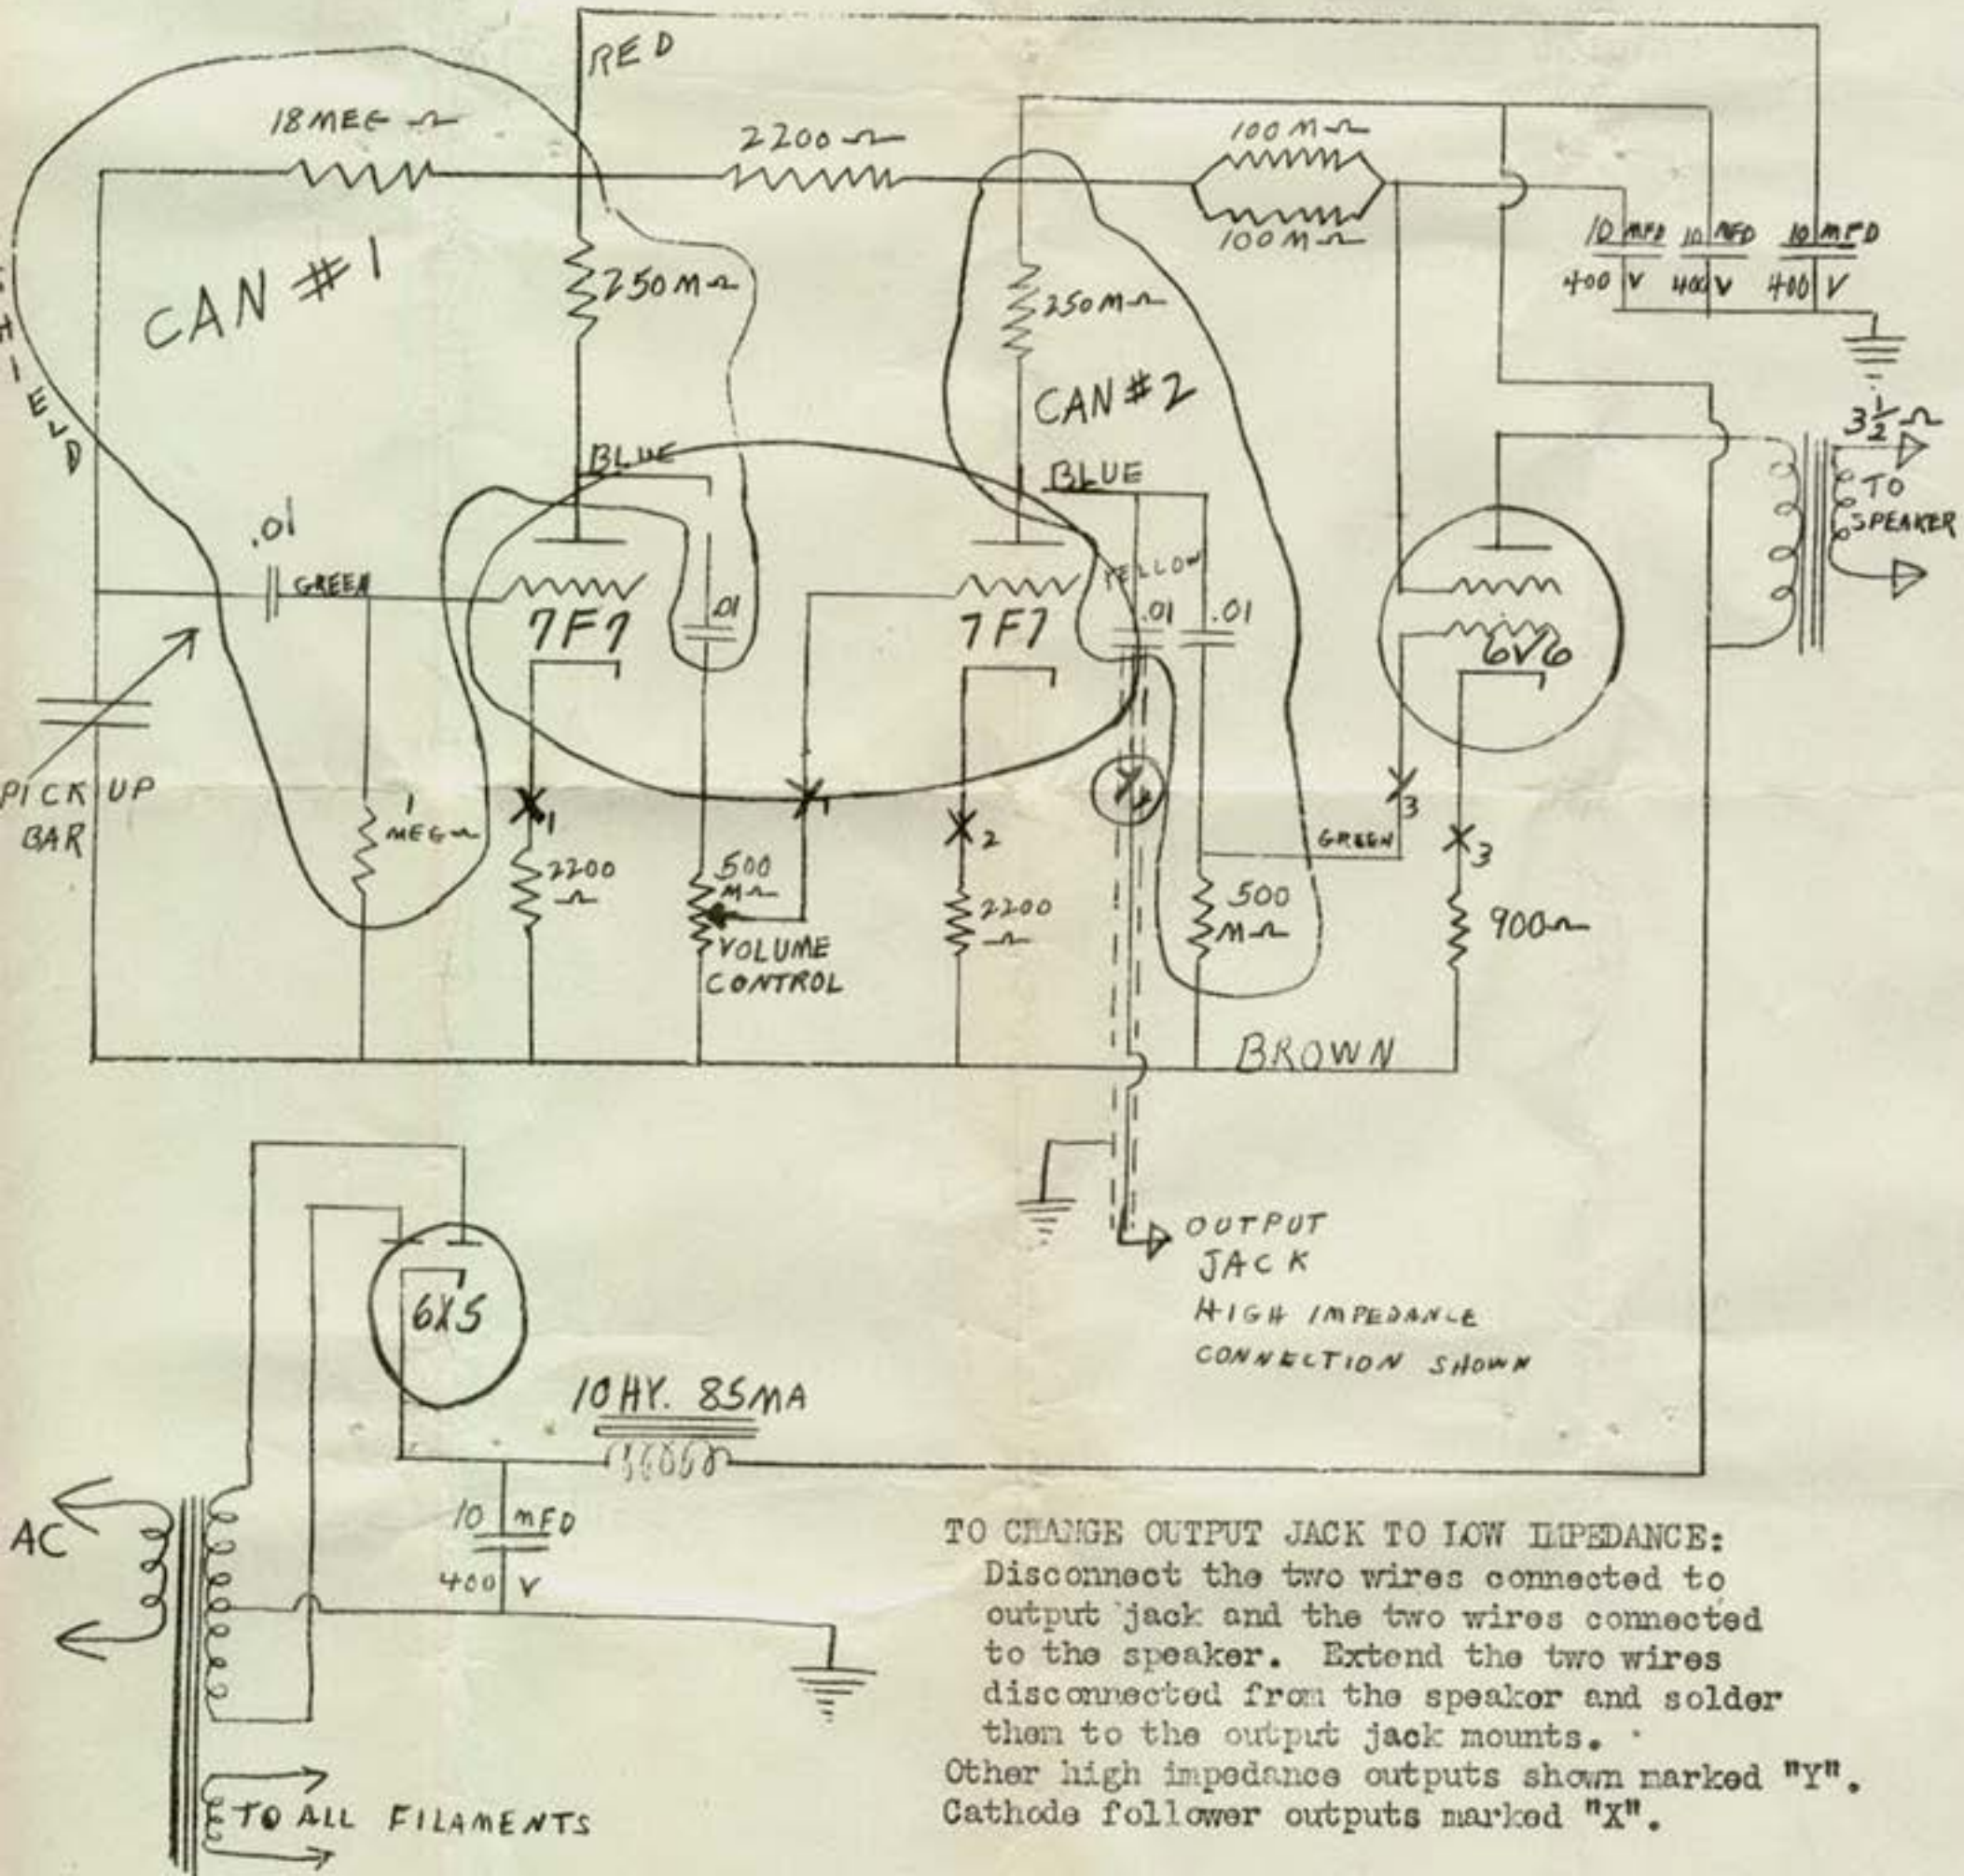 RED
18 MEG Ω
2200 Ω
100 M Ω
100 M Ω
SHIELD
CAN #1
250 M Ω
250 M Ω
CAN #2
10 MFD
400 V
10 MFD
400 V
10 MFD
400 V
3½ Ω
TO
SPEAKER
BLUE
BLUE
.01
GREEN
YELLOW
7F7
.01
7F7
.01
.01
6V6
PICK UP
BAR
1
MEG Ω
X1
2200
Ω
500
M Ω
VOLUME
CONTROL
Y1
X2
2200
Ω
GREEN
Y3
X3
500
M Ω
900 Ω
BROWN
6X5
OUTPUT
JACK
HIGH IMPEDANCE
CONNECTION SHOWN
10 HY. 85MA
AC
10 MFD
400 V
TO ALL FILAMENTS
TO CHANGE OUTPUT JACK TO LOW IMPEDANCE:
Disconnect the two wires connected to
output jack and the two wires connected
to the speaker. Extend the two wires
disconnected from the speaker and solder
them to the output jack mounts.
Other high impedance outputs shown marked "Y".
Cathode follower outputs marked "X".